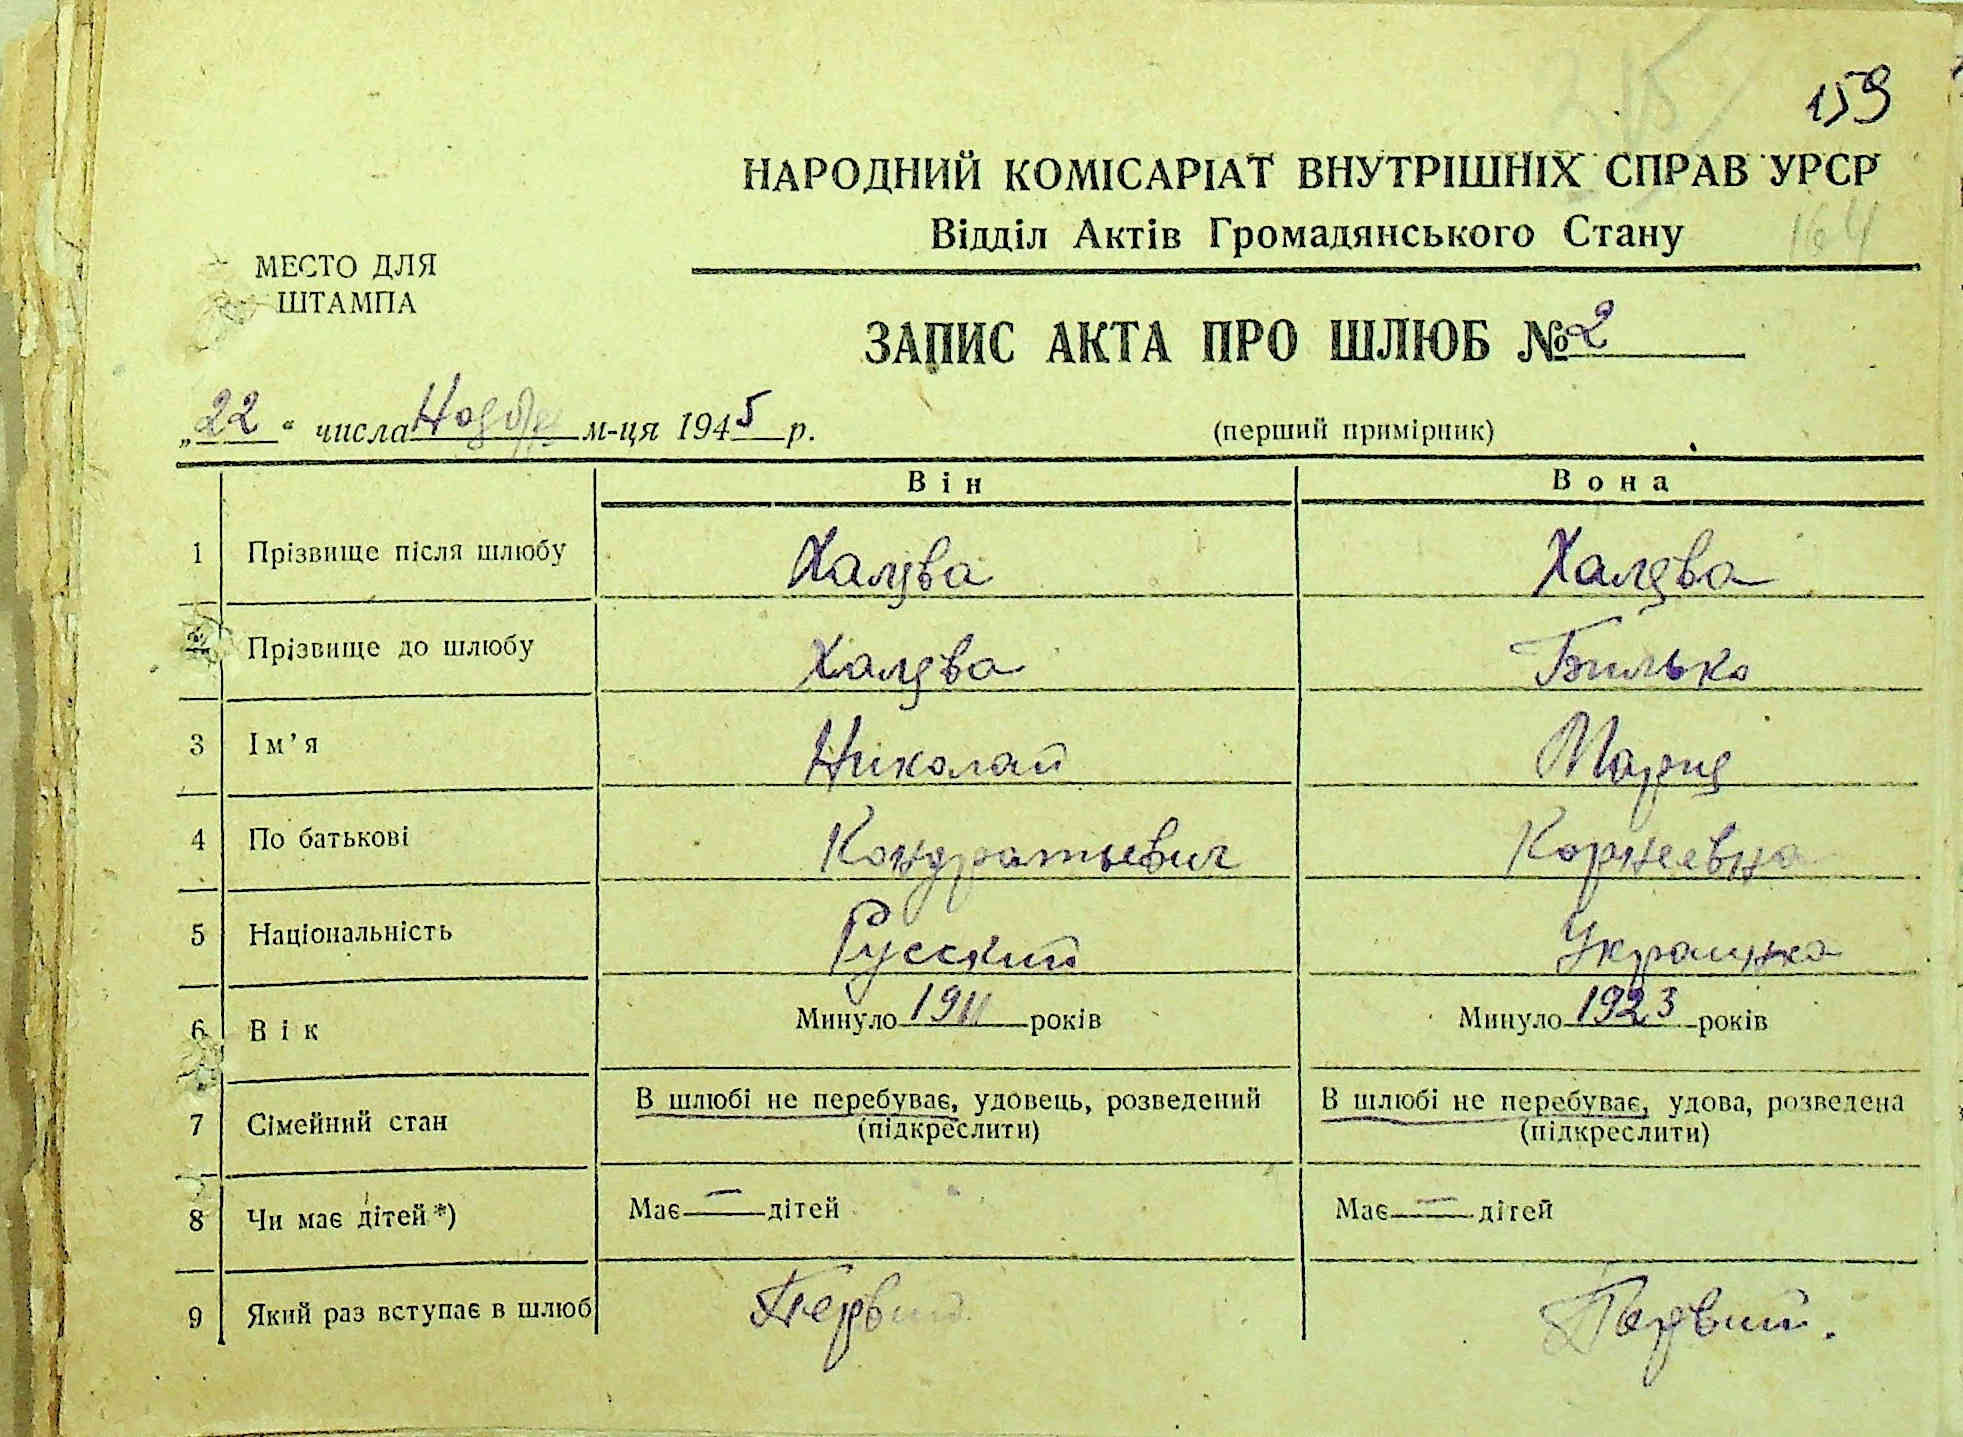 159
НАРОДНИЙ КОМІСАРІАТ ВНУТРІШНІХ СПРАВ УРСР
Відділ Актів Громадянського Стану
164
МЕСТО ДЛЯ
ШТАМПА
ЗАПИС АКТА ПРО ШЛЮБ № 2
„22“ числа м-ця 1945 р. (перший примірник)
Він Вона
1 Прізвище після шлюбу
2 Прізвище до шлюбу Билько
3 Ім'я Николай Мария
4 По батькові Кондратьевич Корнеевна
5 Національність Русский Украинка
6 Вік Минуло 1911 років Минуло 1923 років
7 Сімейний стан В шлюбі не перебуває, удовець, розведений В шлюбі не перебуває, удова, розведена
(підкреслити) (підкреслити)
8 Чи має дітей*) Має — дітей Має — дітей
9 Який раз вступає в шлюб Первий Первий.